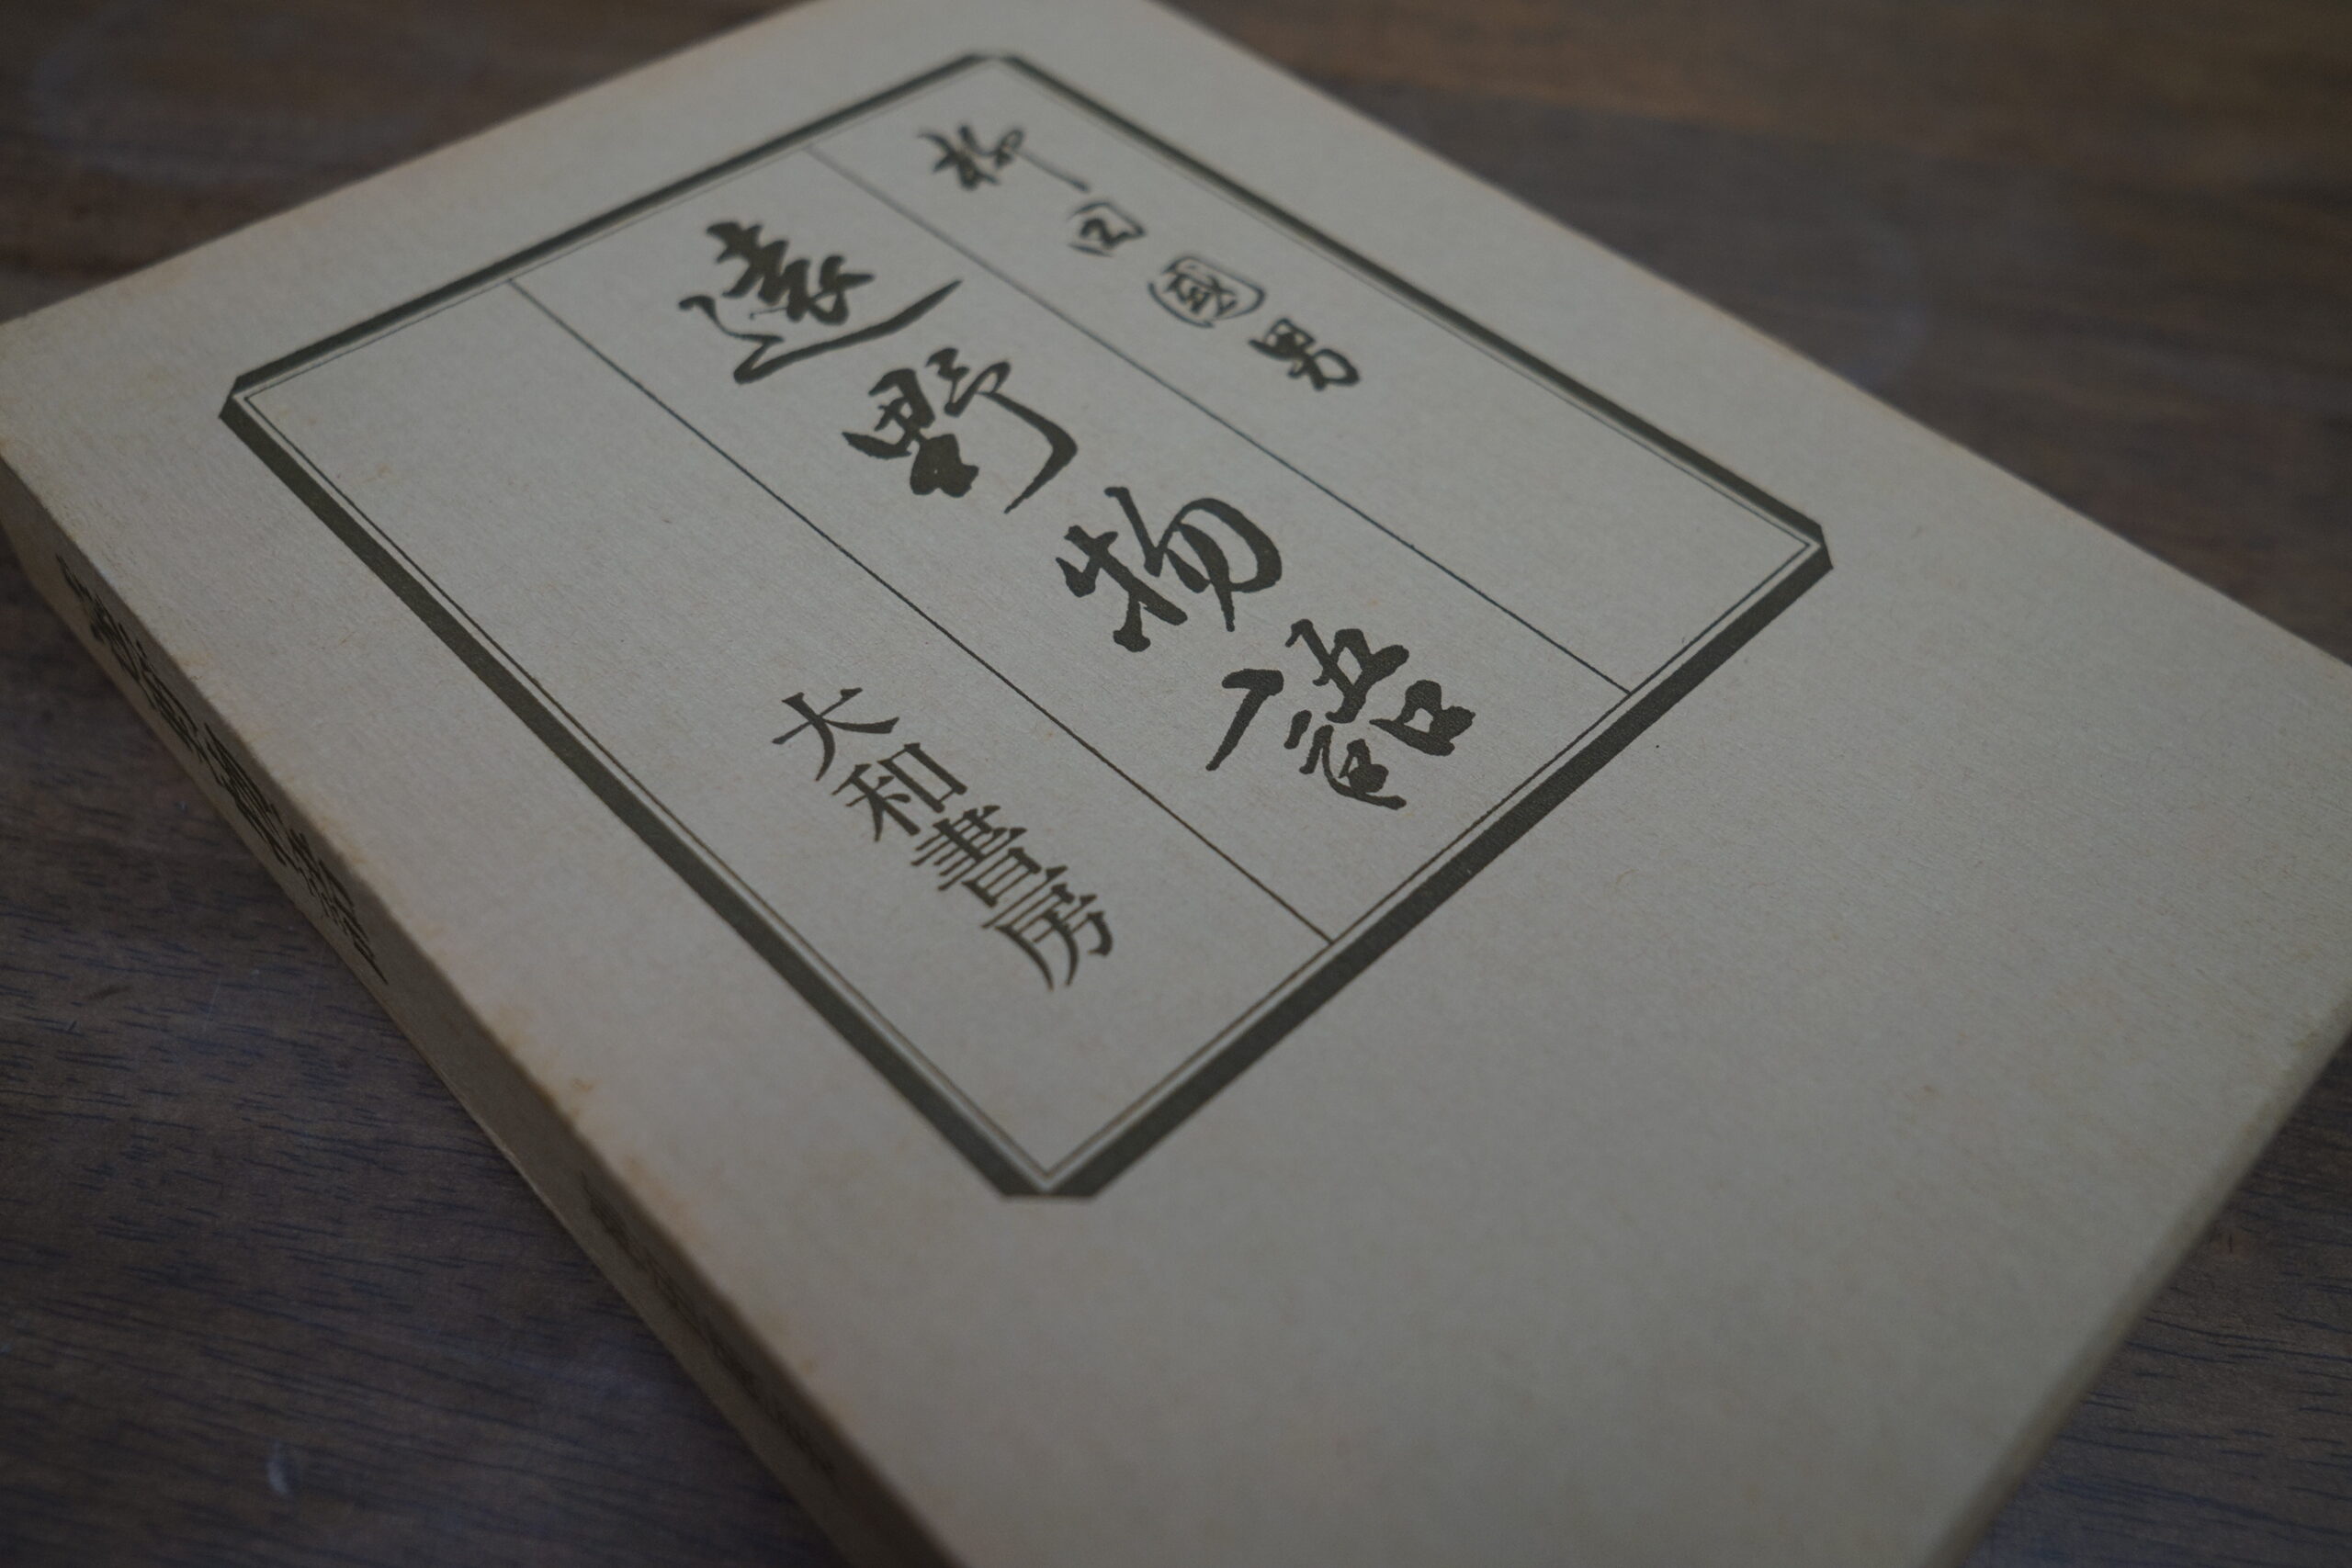 柳田國男
遠野物語
大和書房